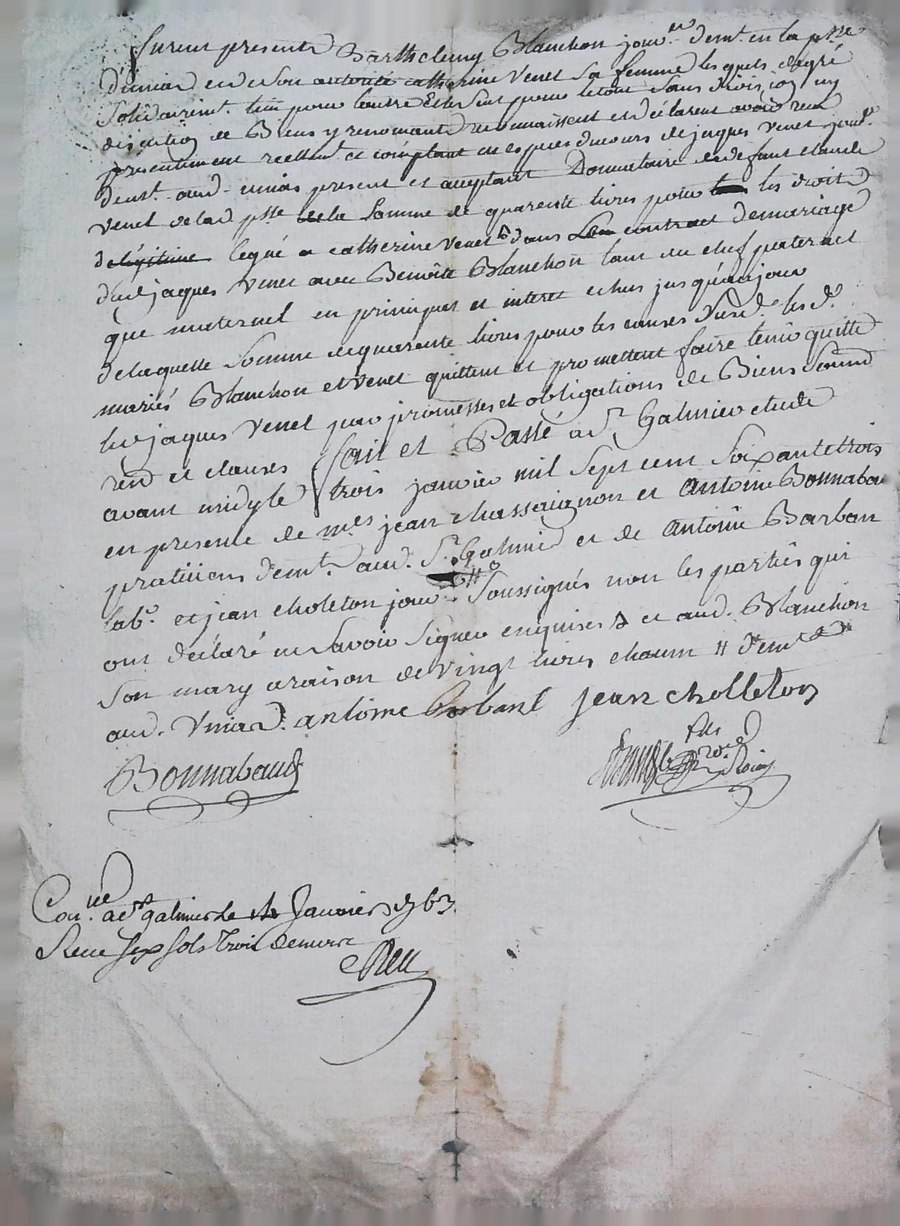 furent presents Barthelemy Blanchon jour.er dem.t en la p.sse
d'unias et de son autorité catherine venet sa femme lesquels degré
solidairem.t l'un pour lautre et le seul pour le tout sans division ny
discution de Biens y renonceants reconnaissent et déclarent avoir reçu
presentement reellem.t et comptant en especes du cours de jaques venet jour.r
dem.t aud. unias present et acceptant Donnataire de defunt claude
venet de lad p.sse de la somme de quarente livres pour les droits
de légitime legué a catherine venet dans contract de mariage
dud jaques venet avec Benoite Blanchon tant du chef paternel
que maternel en principal et interet echus jusqu'é aujour
de laquelle somme de quarente livres pour les causes susd. les d.
mariés Blanchon et venet quittent et promettent faire tenir quitte
led jaques venet par promesses et obligations de Biens soum
ren et clauses fait et Passé a S.t Galmier etude
avant midy le trois janvier mil sept cent soixante trois
en presence de m.es jean chassaignon et antoine Bonnabau
praticiens dem.t aud. S.t Galmier et de antoine Barban
lab.r et jean choleton jour.r soussignés non les parties qui
ont déclaré ne savoir signer enquises et aud. Blanchon
son mary a raison de vingt livres chacun dem.t
aud. unias. antoine Barbant jean cholleton
Bonnabaud
Con.lé a S.t galmier le Janvier 1763
Reçu six sols trois deniers